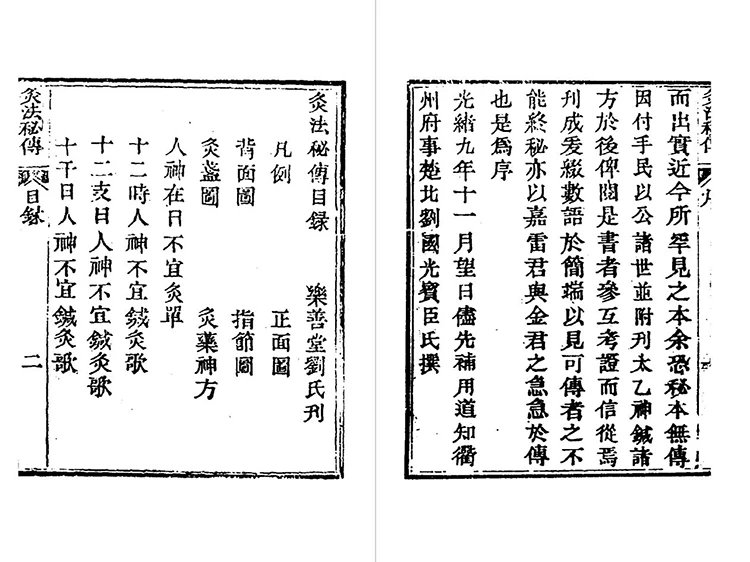 而出實近今所罕見之本余恐秘本無傳
因付手民以公諸世並附刊太乙神鍼諸
方於後俾閱是書者參互考證而信從焉
刊成爰綴數語於簡端以見可傳者之不
能終秘亦以嘉雷君與金君之急急於傳
也是為序
光緒九年十一月望日儘先補用道知衢
州府事楚北劉國光賓臣氏撰
灸法秘傳目錄 樂善堂劉氏刊
凡例 正面圖
背面圖 指節圖
灸盞圖 灸藥神方
人神在日不宜灸單
十二時人神不宜鍼灸歌
十二支日人神不宜鍼灸歌
十干日人神不宜鍼灸歌
灸法秘傳 目錄 二